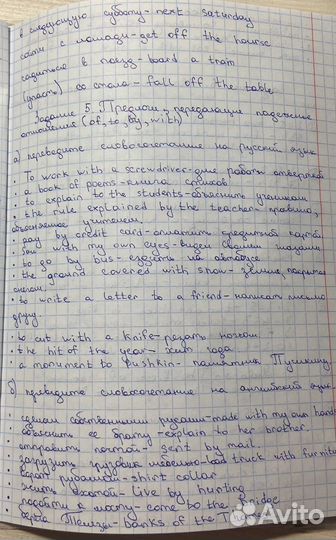 в следующую субботу-next saturday
сойти с лошади-get off the hourse
садиться в поезд-board a train
(упасть) со стола-fall off the table
Задание 5. Предлоги, передающие падежные
отношения (of, to, by, with)
а) переведите словосочетание на русский язык
• To work with a screwdriver-для работы отверткой
• a book of poems-книга стихов
• to explain to the students-объяснить ученикам
• the rule explained by the teacher-правило,
объясненное учителем.
• pay by credit card-оплатить кредитной картой
• saw with my own eyes-видел своими глазами
• to go by bus-ездить на автобусе
• the ground covered with snow-земля, покрытая
снегом.
• to write a letter to a friend-написать письмо
другу.
• to cut with a knife-резать ножом.
• the hit of the year-хит года
• a monument to Pushkin-памятник Пушкину
б) переведите словосочетание на английский язык
• сделан собственными руками-made with my own hands
• объяснить ее брату-explain to her brother.
• отправить почтой-sent by mail.
• загрузить грузовик мебелью-load truck with furniture
• ворот рубашки-shirt collar
• жить охотой-live by hunting
• подойти к мосту-come to the bridge
• берега Темзы-banks of the
Avito